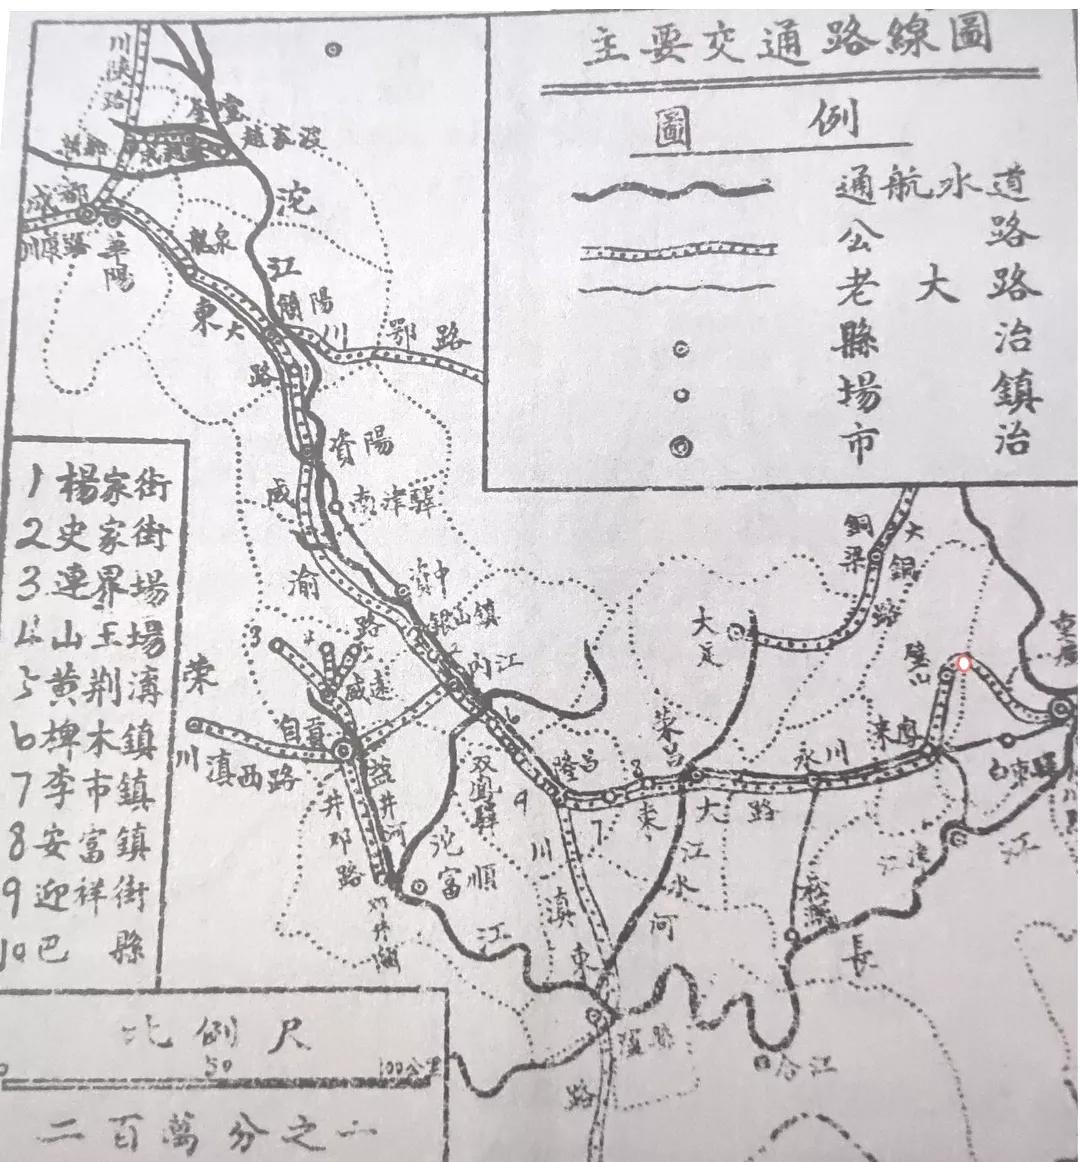 主要交通路線圖
圖例
通航水道
公路
老大路
縣治
場鎮
市治
川陝路
金堂
趙家渡
沱江
成都
川康路
華陽
龍泉
簡陽
東大路
川鄂路
資陽
南津驛
成渝路
資中
銀山鎮
內江
威遠
3
自貢
榮川
滇西路
井邓路
鹽井河
双鳳驛
沱江
富順
隆昌
9
8
7
6
東大路
榮昌
永川
來鳳
璧山
大足
銅梁
大銅路
重慶
白市驛
江津
松溉
長江
川滇東路
江水河
瀘縣
合江
1 楊家街
2 史家街
3 連界場
4 山王場
5 黃荆溝
6 椑木鎮
7 李市鎮
8 安富鎮
9 迎祥街
10 巴縣
比例尺
0 50 100公里
二百萬分之一